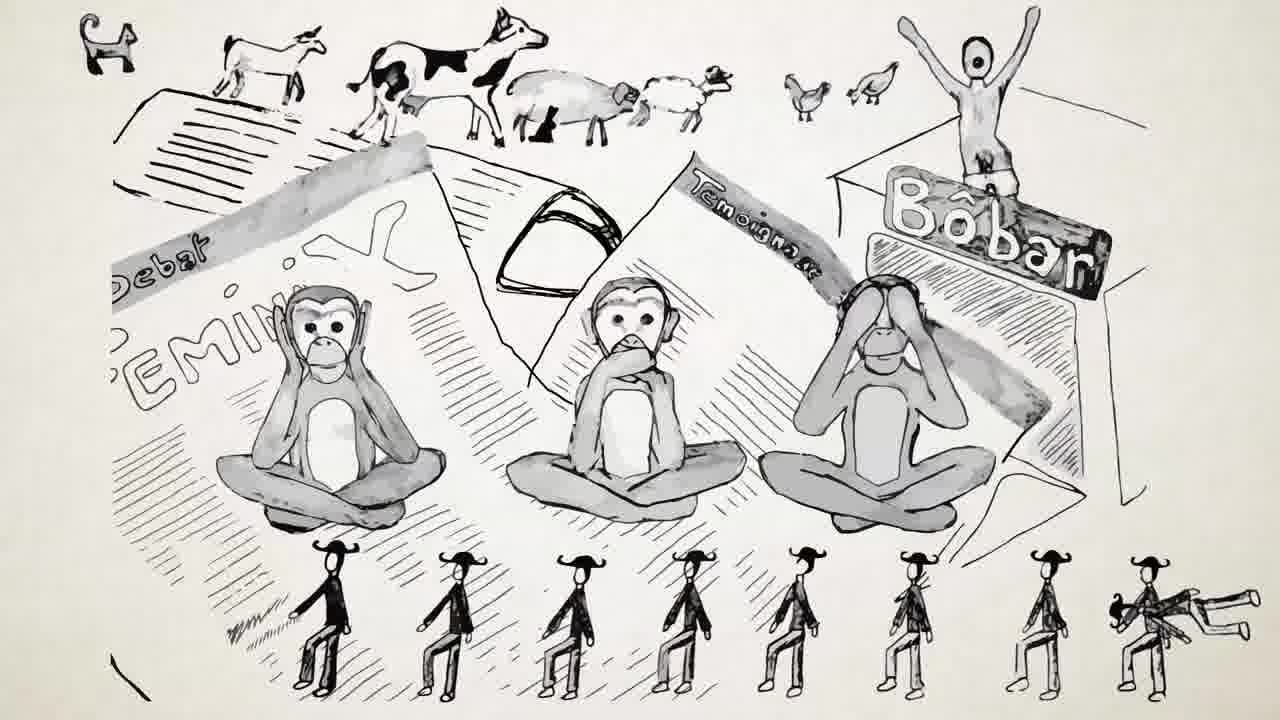 Debat
FEMINIX
Témoignage
Bôbar